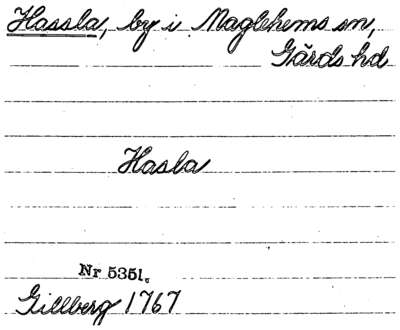 Hassla, by i Maglehems sn,
Gärds hd
Hasla
Nr 5351.
Gillberg 1767